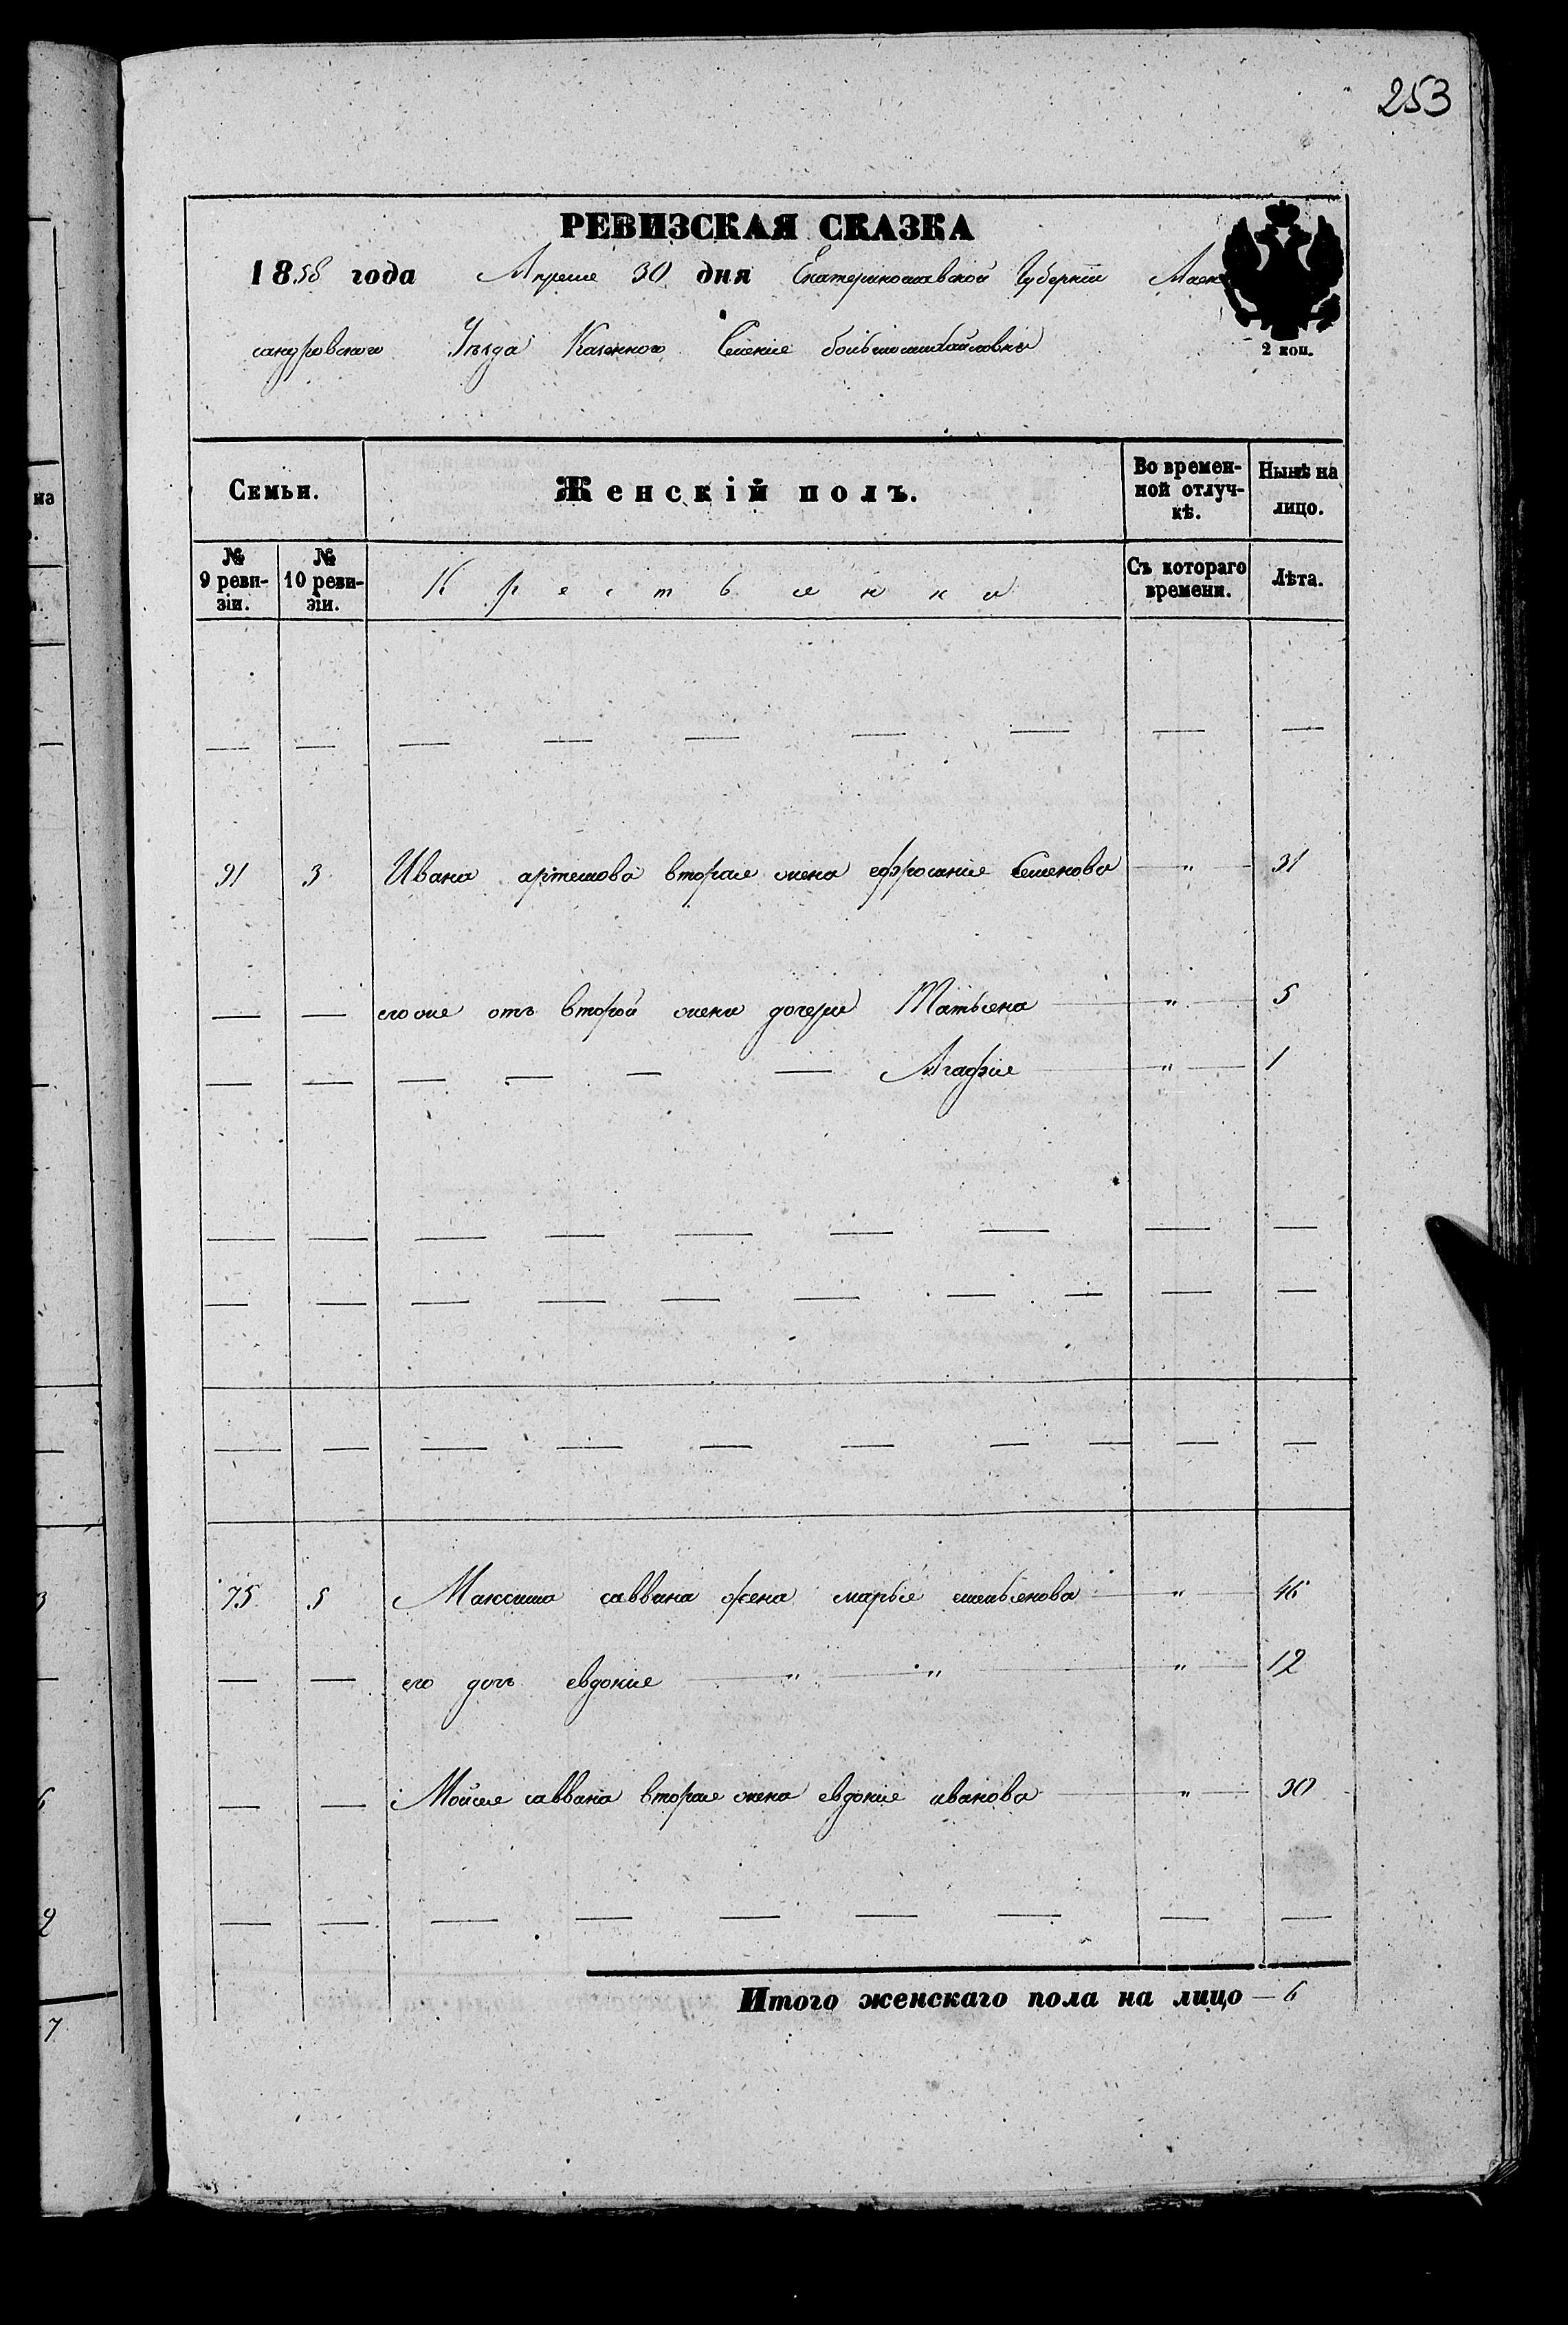 253
РЕВИЗСКАЯ СКАЗКА
1858 года Апреля 30 дня Екатеринославской Губернии Алек
сандровского Уезда Казенного Селение большемихайловки
2 коп.
Семьи. Женскій полъ. Во времен-ной отлуч-кѣ. Нынѣ на лицо.
№ 9 реви-зіи. № 10 реви-зіи. Крестьянки Съ котораго времени. Лѣта.
— — — — — — — — —
91 3 Ивана артемова вторая жена ефросиния Семенова — " — 31
— — его же отъ второй жены дочери Татьяна — " — 5
— — — — — — Агафия — " — 1
— — — — — — — — —
— — — — — — — — — —
— — — — — — — — — —
75 5 Максима саввина жена марья емельянова — " — 46
— — его дочь евдокия — " — " — " — 12
— — Мойсея саввина вторая жена евдокия иванова — " — 30
— — — — — — — — —
Итого женскаго пола на лицо — 6
на
3
6
2
7